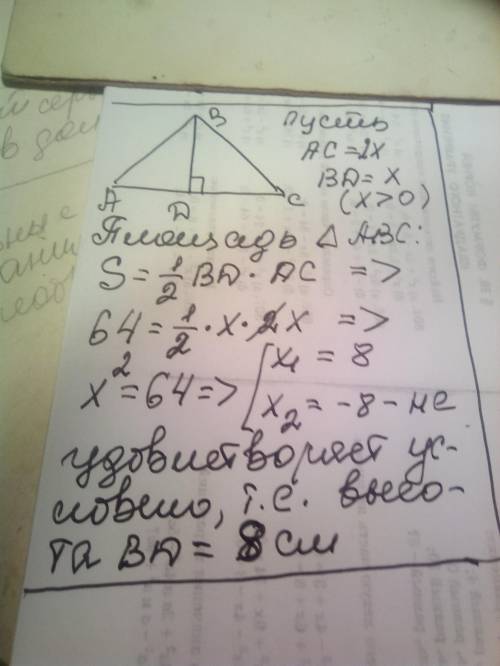 B
A
D
C
Пусть
AC=2x
BD=x
(x>0)
Площадь △ABC:
S=1/2 BD·AC =>
64=1/2·x·2x =>
x²=64=>[x₁=8
x₂=-8-не
удовлетворяет ус-
ловию, т.е. высо-
та BD=8см